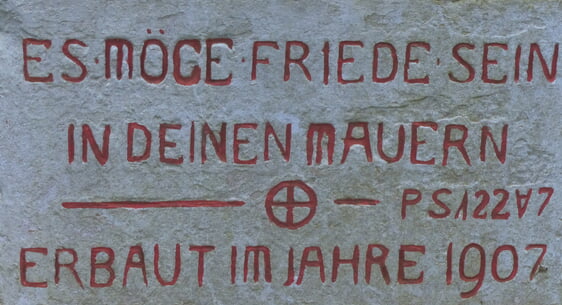 ES·MÖGE·FRIEDE·SEIN
IN DEINEN MAUERN
PS122V7
ERBAUT IM JAHRE 1907